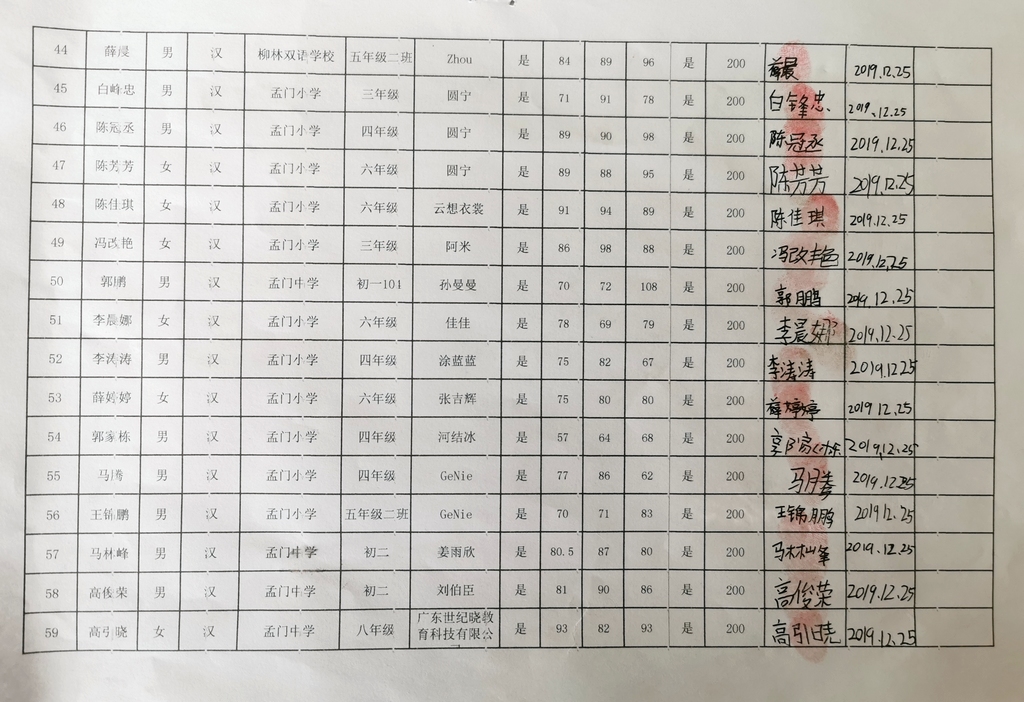 44 薛晸 男 汉 柳林双语学校 五年级二班 Zhou 是 84 89 96 是 200 2019.12.25
45 白峰忠 男 汉 孟门小学 三年级 圆宁 是 71 91 78 是 200 白锋忠 2019.12.25
46 陈冠丞 男 汉 孟门小学 四年级 圆宁 是 89 90 98 是 200 陈冠丞 2019.12.25
47 陈芳芳 女 汉 孟门小学 六年级 圆宁 是 89 88 95 是 200 陈芳芳 2019.12.25
48 陈佳琪 女 汉 孟门小学 六年级 云想衣裳 是 91 94 89 是 200 陈佳琪 2019.12.25
49 冯改艳 女 汉 孟门小学 三年级 阿米 是 86 98 88 是 200 冯改艳 2019.12.25
50 郭鹏 男 汉 孟门中学 初一104 孙曼曼 是 70 72 108 是 200 郭鹏 2019.12.25
51 李晨娜 女 汉 孟门小学 六年级 佳佳 是 78 69 79 是 200 李晨娜 2019.12.25
52 李涛涛 男 汉 孟门小学 四年级 涂蓝蓝 是 75 82 67 是 200 李涛涛 2019.12.25
53 薛婷婷 女 汉 孟门小学 六年级 张吉辉 是 75 80 80 是 200 薛婷婷 2019.12.25
54 郭家栋 男 汉 孟门小学 四年级 河结冰 是 57 64 68 是 200 郭家栋 2019.12.25
55 马腾 男 汉 孟门小学 四年级 GeNie 是 77 86 62 是 200 马腾 2019.12.25
56 王锦鹏 男 汉 孟门小学 五年级二班 GeNie 是 70 71 83 是 200 王锦鹏 2019.12.25
57 马林峰 男 汉 孟门中学 初二 姜雨欣 是 80.5 87 80 是 200 马林峰 2019.12.25
58 高俊荣 男 汉 孟门中学 初二 刘伯臣 是 81 90 86 是 200 高俊荣 2019.12.25
59 高引晓 女 汉 孟门中学 八年级 广东世纪晓教 是 93 82 93 是 200 高引晓 2019.12.25
育科技有限公